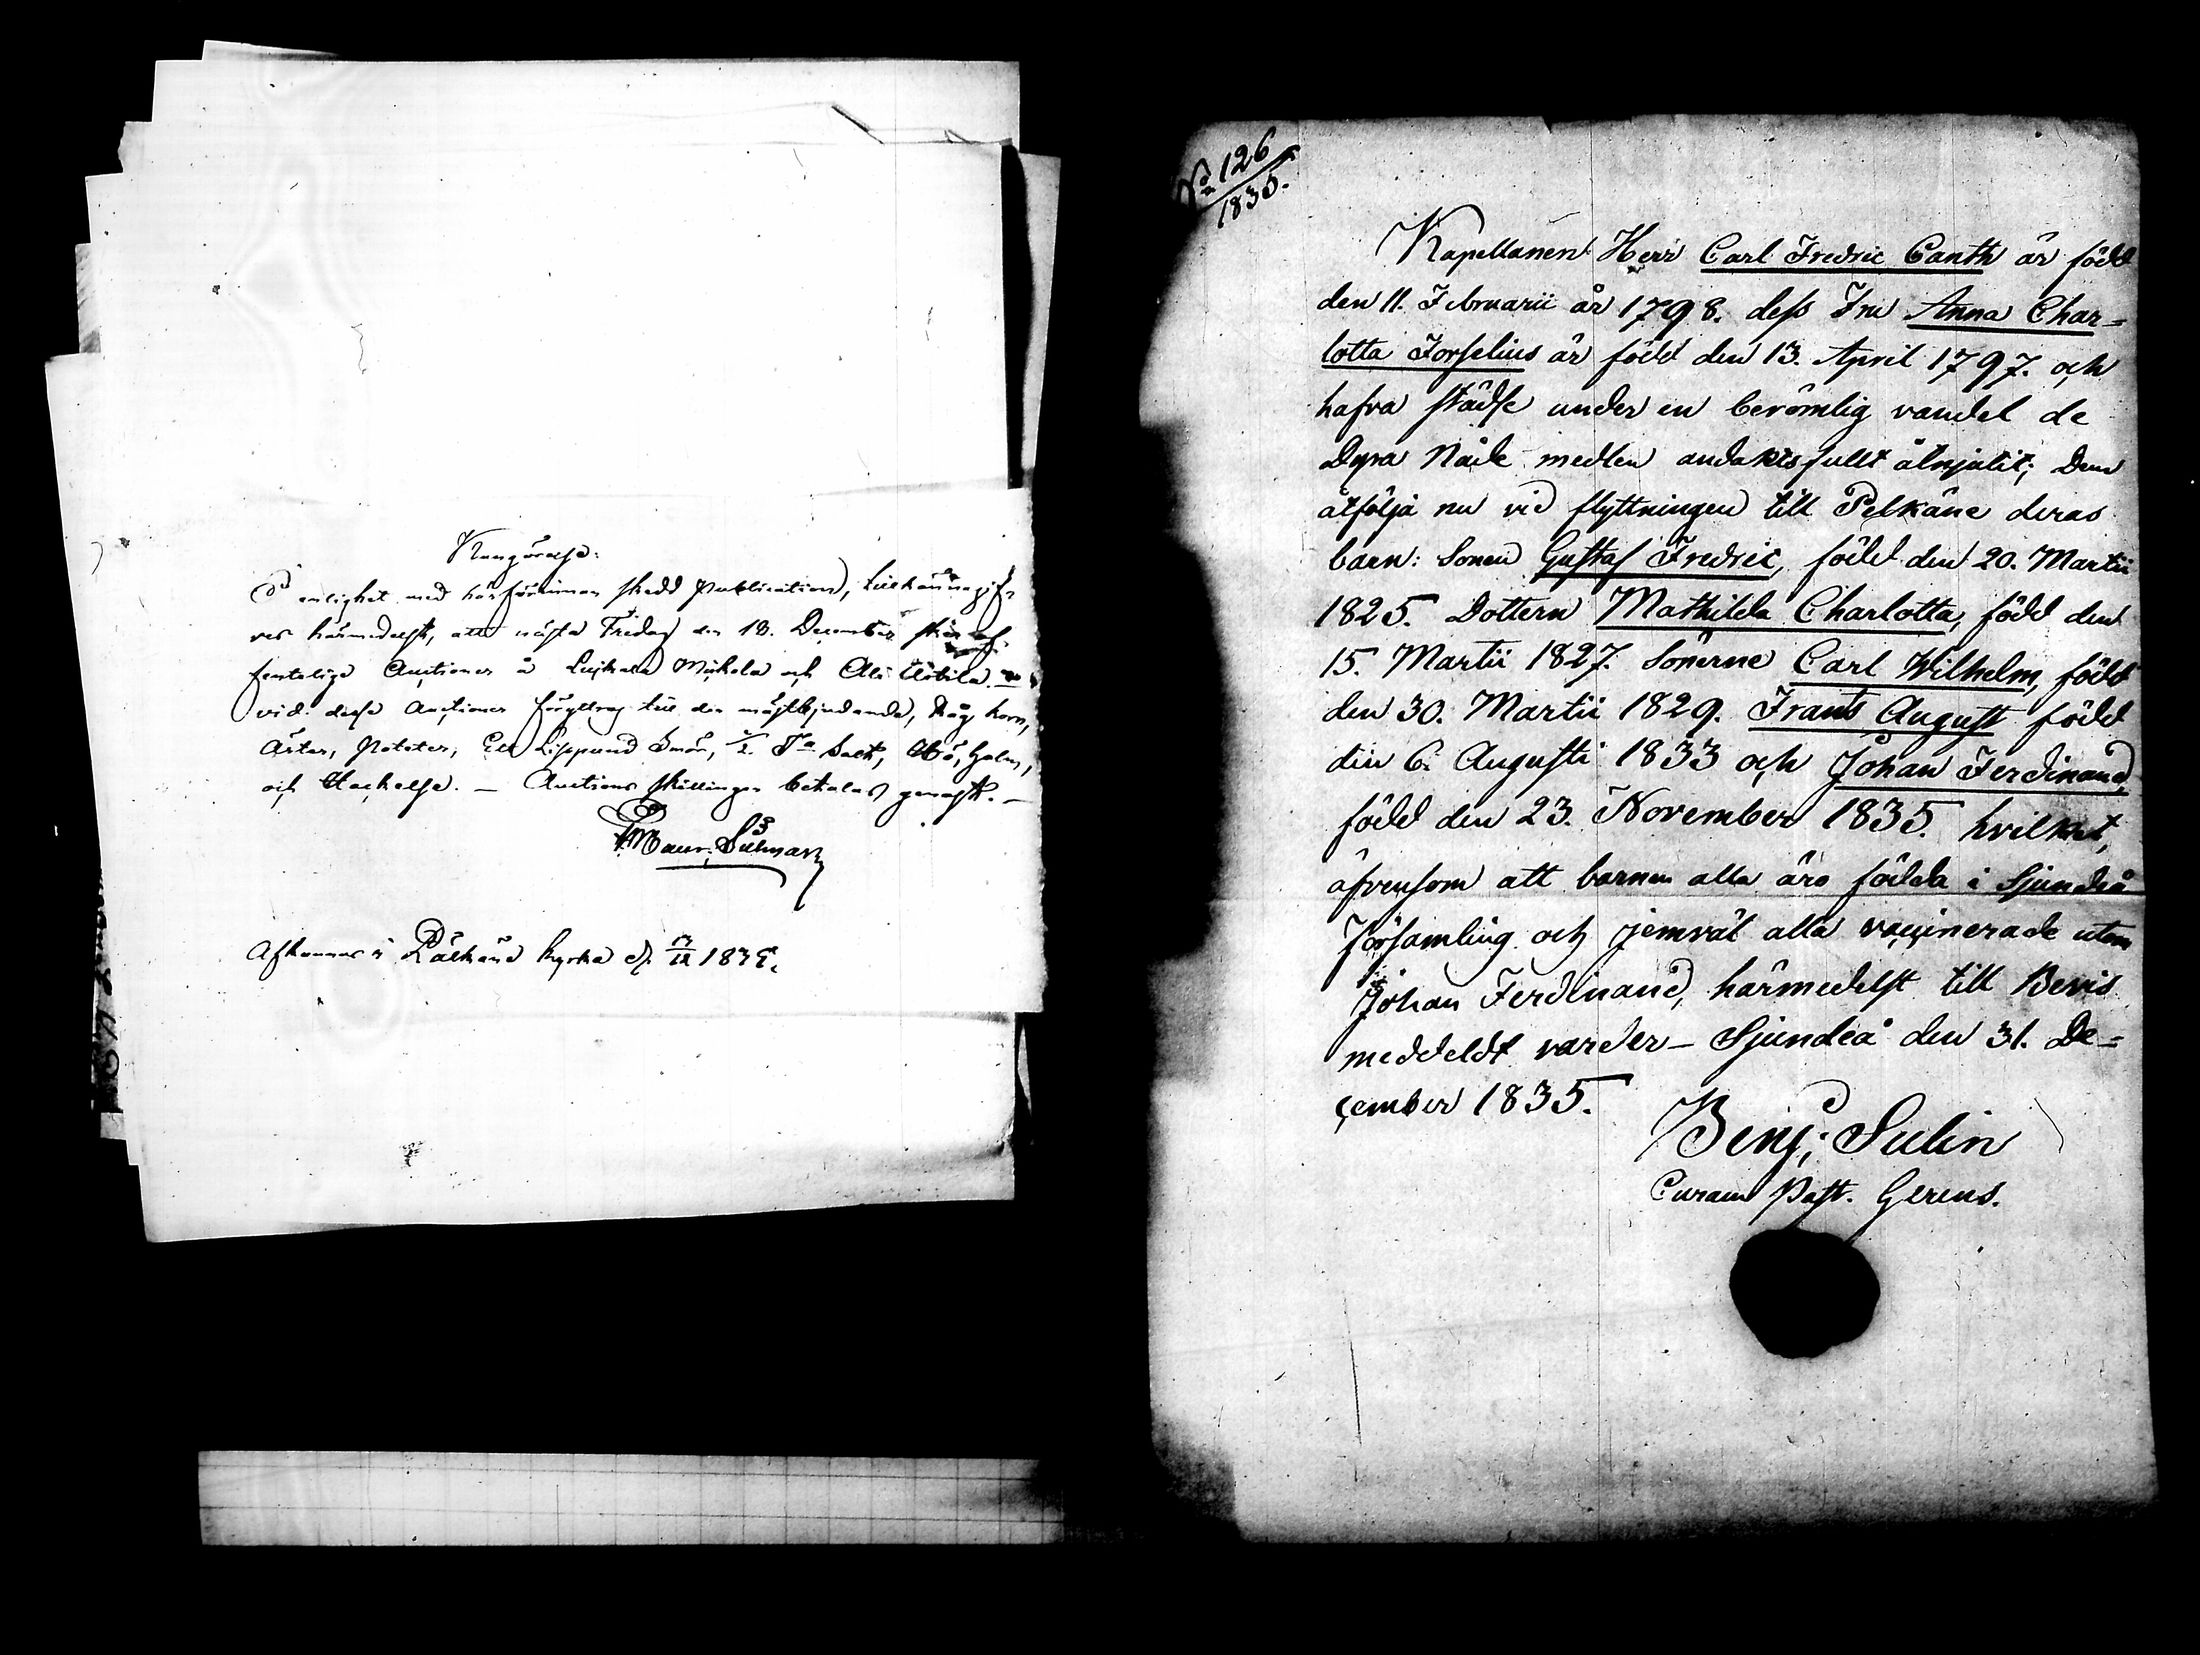 Kungörelse:
I enlighet med härförinnan skedd publication, tillkännagif-
ves härmedelst, att nästa Fredag den 18. December sker of-
fentelige Auctioner å Luikala Mickola och Ali Uotila
vid desse Auctioner föryttras till den mästbjudande, Råg korn,
Ärter, Potäter, Ett Lispund Smör, 1/2 Ta Salt, Hö, halm,
och Hackelse. — Auctions skillingen betalas genast. —
Afkunnas i Pälkäne kyrka d. 13/12 1835.
No 126
1835.
Kapellanen Herr Carl Fredric Canth är född
den 11. Februarii år 1798. dess Fru Anna Char=
lotta Forselius är född den 13. April 1797. och
hafva städse under en berömlig vandel de
Dyra Nåde medlen andaktsfullt åtnjutit; Dem
åtfölja nu vid flyttningen till Pelkäne deras
barn: Sonen Gustaf Fredric, född den 20. Martii
1825. Dottern Mathilda Charlotta, född den
15. Martii 1827. Sönerne Carl Wilhelm, född
den 30. Martii 1829. Frants August född
den 6. Augusti 1833 och Johan Ferdinand,
född den 23. November 1835. hvilket,
äfvensom att barnen alla äro födda i Sjundeå
församling och jemväl alla vaccinerade utom
Johan Ferdinand, härmedelst till Bevis
meddeldt varder — Sjundeå den 31. De=
cember 1835.
Benj; Sulin
Curam Past. Gerens.